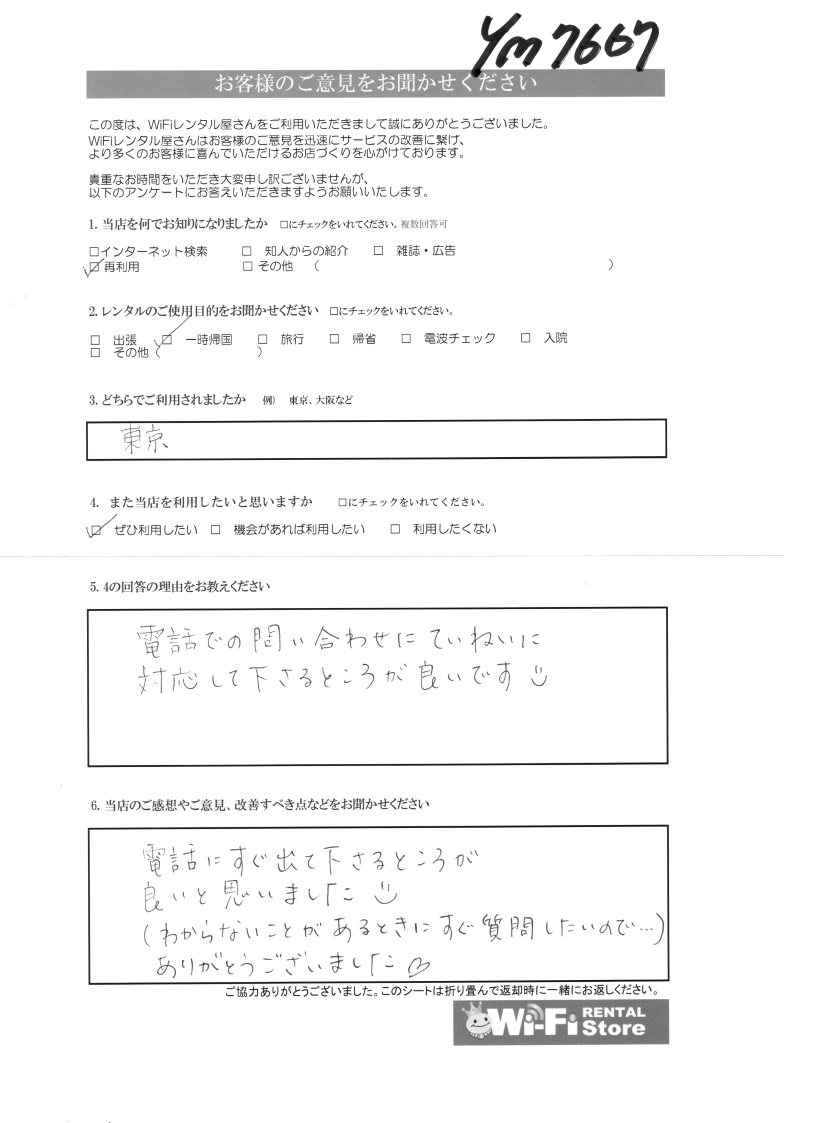 Ym7667
お客様のご意見をお聞かせください
この度は、WiFiレンタル屋さんをご利用いただきまして誠にありがとうございました。
WiFiレンタル屋さんはお客様のご意見を迅速にサービスの改善に繋げ、
より多くのお客様に喜んでいただけるお店づくりを心がけております。
貴重なお時間をいただき大変申し訳ございませんが、
以下のアンケートにお答えいただきますようお願いいたします。
1. 当店を何でお知りになりましたか □にチェックをいれてください。複数回答可
□インターネット検索 □ 知人からの紹介 □ 雑誌・広告
☑再利用 □その他 ( )
2. レンタルのご使用目的をお聞かせください □にチェックをいれてください。
□ 出張 ☑ 一時帰国 □ 旅行 □ 帰省 □ 電波チェック □ 入院
□ その他 ( )
3. どちらでご利用されましたか 例) 東京、大阪など
東京
4. また当店を利用したいと思いますか □にチェックをいれてください。
☑ ぜひ利用したい □ 機会があれば利用したい □ 利用したくない
5. 4の回答の理由をお教えください
電話での問い合わせにていねいに
対応して下さるところが良いです
6. 当店のご感想やご意見、改善すべき点などをお聞かせください
電話にすぐ出て下さるところが
良いと思いました
(わからないことがあるときにすぐ質問したいので…)
ありがとうございました♡
ご協力ありがとうございました。このシートは折り畳んで返却時に一緒にお返しください。
Wi-Fi RENTAL Store